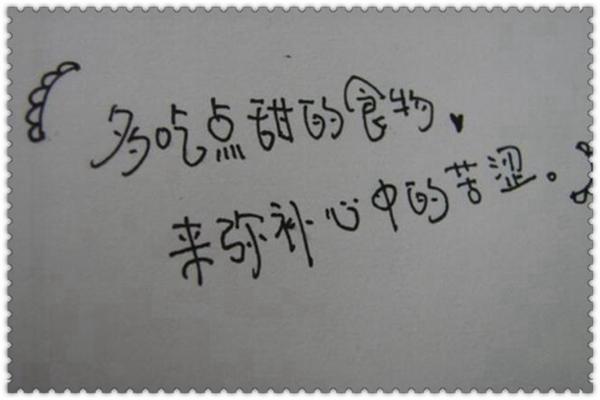 多吃点甜的食物，
来弥补心中的苦涩。